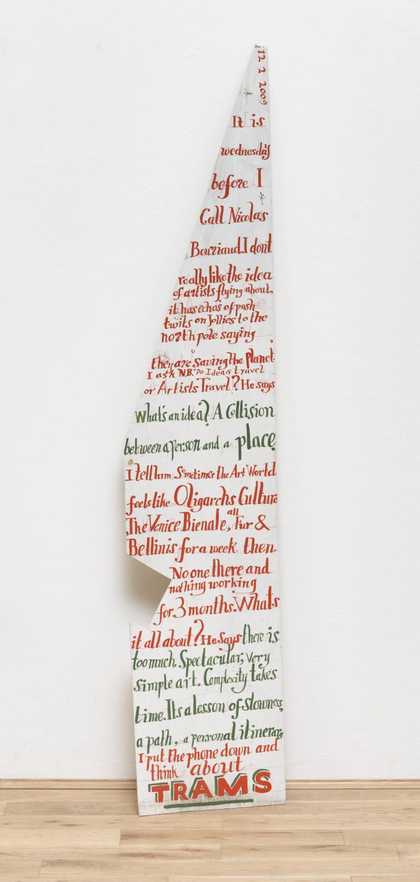 12 2 2009
It is
wednesday
before I
Call Nicolas
Bourriaud. I dont
really like the idea
of artists flying about.
it has echos of posh
twits on Jollies to the
north pole saying
they are saving the Planet
I ask N.B. Do Ideas travel
or Artists Travel? He says
What's an idea? A Collision
between a person and a place.
I tell him Sometimes the Art World
feels like Oligarchs Culture
The Venice Bienale, all fur &
Bellinis for a week then
No one there and
nothing working
for 3 months. Whats
it all about? He Says there is
too much. Spectacular, very
simple art. Complexity takes
time. Its a lesson of slowness,
a path, a personal itinerary
I put the phone down and
think about
TRAMS